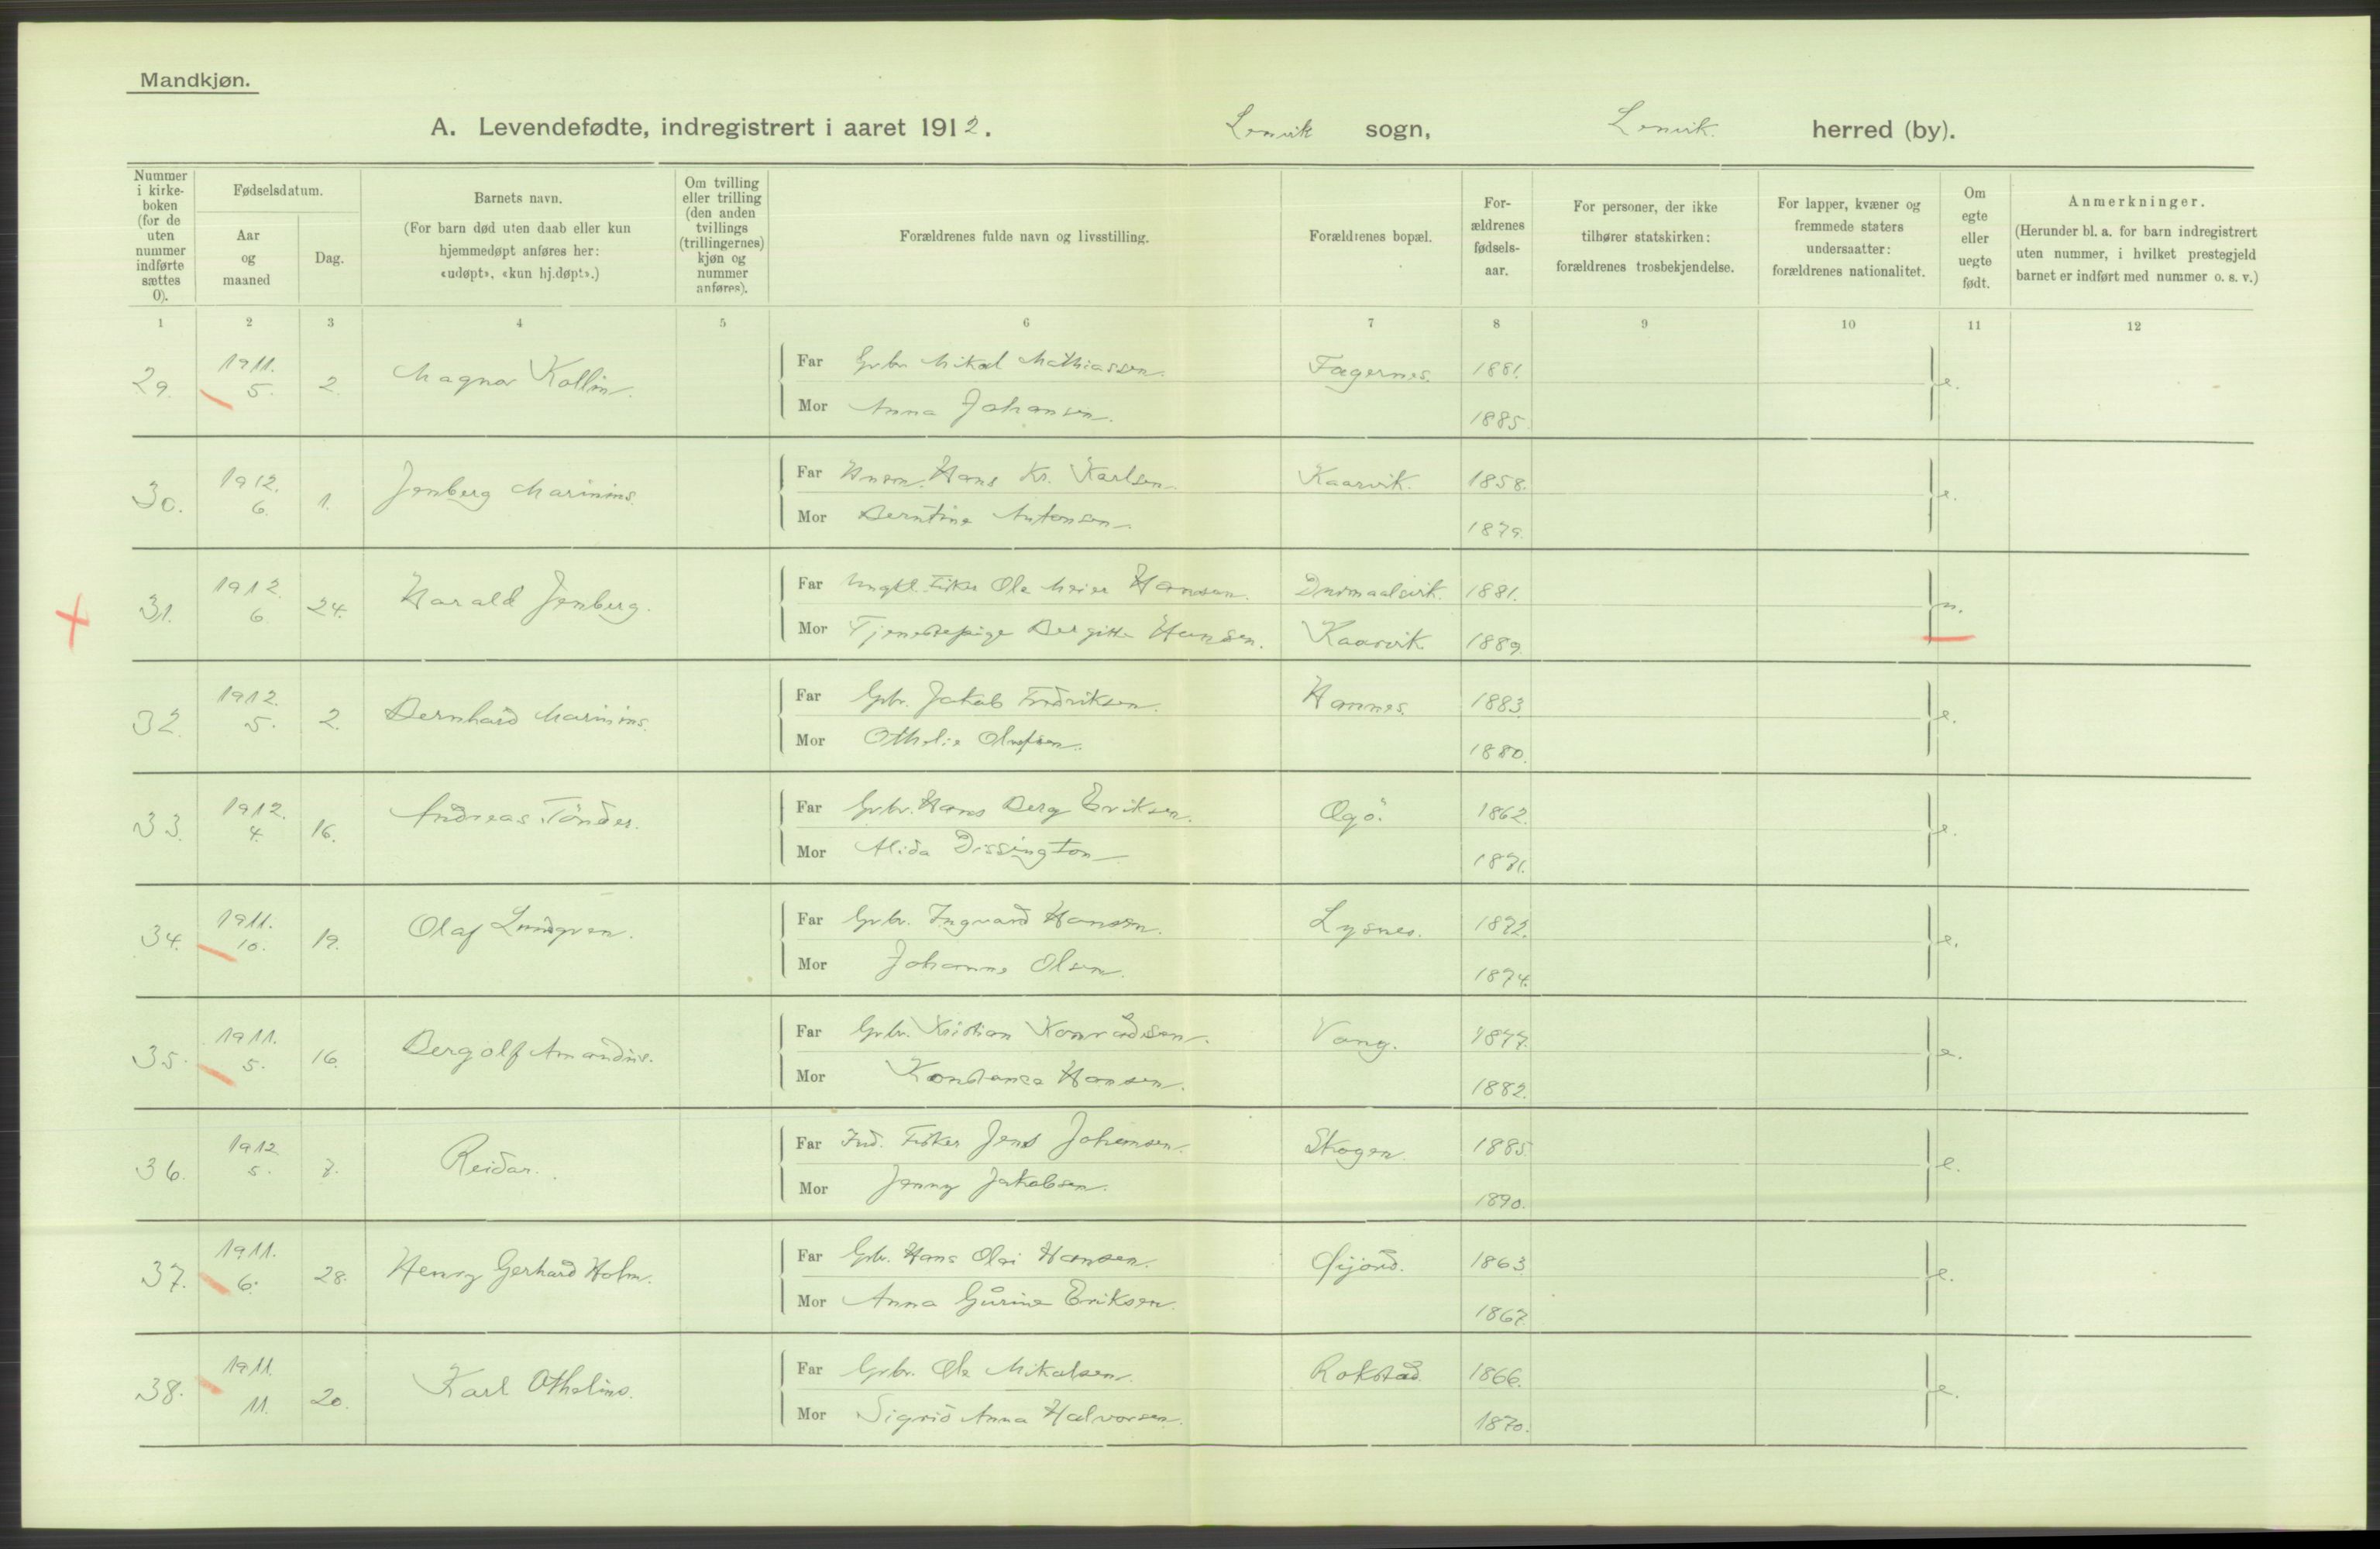 Mandkjøn.
A. Levendefødte, indregistrert i aaret 1912. Lenvik sogn, Lenvik. herred (by).
Nummer i kirke-boken (for de uten nummer indførte sættes 0).
Fødselsdatum.
Aar og maaned
Dag.
Barnets navn.
(For barn død uten daab eller kun hjemmedøpt anføres her: «udøpt», «kun hj.døpt».)
Om tvilling eller trilling (den anden tvillings (trillingernes) kjøn og nummer anføres).
Forældrenes fulde navn og livsstilling.
Forældrenes bopæl.
For-ældrenes fødsels-aar.
For personer, der ikke tilhører statskirken: forældrenes trosbekjendelse.
For lapper, kvæner og fremmede staters undersaatter: forældrenes nationalitet.
Om egte eller uegte født.
Anmerkninger.
(Herunder bl. a. for barn indregistrert uten nummer, i hvilket prestegjeld barnet er indført med nummer o. s. v.)
1 2 3 4 5 6 7 8 9 10 11 12
29. 1911. 5. 2. Magnar Kollin. Far Grbr. Mikal Mathiassen. Fagernes. 1881. e.
Mor Anna Johansen. 1885.
30. 1912. 6. 1. Jenberg Marinius. Far Husm. Hans Kr. Karlsen. Kaarvik. 1858. e.
Mor Berntine Antonsen. 1879.
31. 1912. 6. 24. Harald Jenberg. Far Ungkl. Fisker Ole Meier Hansen. 1881. u.
Mor Tjenestepige Bergitte Hansen. Kaarvik 1889.
32. 1912. 5. 2. Bernhard Marinius. Far Gbr. Jakob Fredriksen. Hannes. 1883. e.
Mor Othelie Olufsen. 1880.
33. 1912. 4. 16. Andreas Tönder. Far Grbr. Hans Berg Eriksen. 1862. e.
Mor Alida Dissington 1871.
34. 1911. 10. 19. Olaf Lundgren. Far Grbr. Ingvard Hansen. Lysnes. 1872. e.
Mor Johanne Olsen. 1874.
35. 1911. 5. 16. Bergolf Amandus. Far Grbr. Kristian Konradsen. Vang. 1877. e.
Mor Konstance Hansen. 1882.
36. 1912 5. 7. Reidar. Far Ind. Fisker Jens Johansen. Skogen. 1885. e.
Mor Jenny Jakobsen. 1890.
37. 1911. 6. 28. Henry Gerhard Holm. Far Grbr. Hans Olai Hansen. Gijord. 1863. e.
Mor Anna Gurine Eriksen. 1867.
38. 1911. 11. 20. Karl Othelius. Far Grbr. Ole Mikalsen. Rokstad. 1866. e.
Mor Sigrid Anna Halvorsen. 1870.